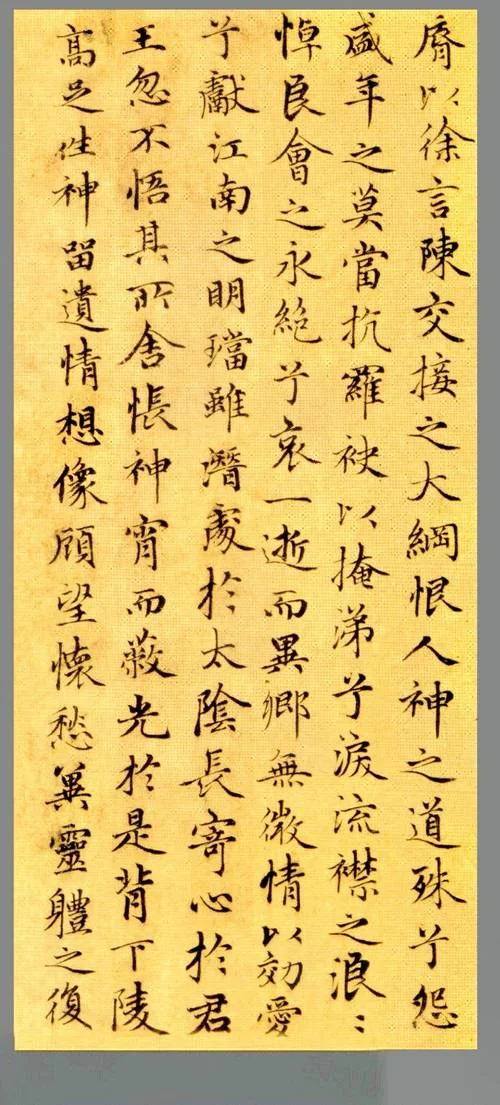 脣以徐言陳交接之大綱恨人神之道殊兮怨
盛年之莫當抗羅袂以掩涕兮淚流襟之浪〻
悼良會之永絕兮哀一逝而異鄉無微情以効愛
兮獻江南之明璫雖潛處於太陰長寄心於君
王忽不悟其所舍悵神宵而蔽光於是背下陵
高足往神留遺情想像顧望懷愁冀靈體之復